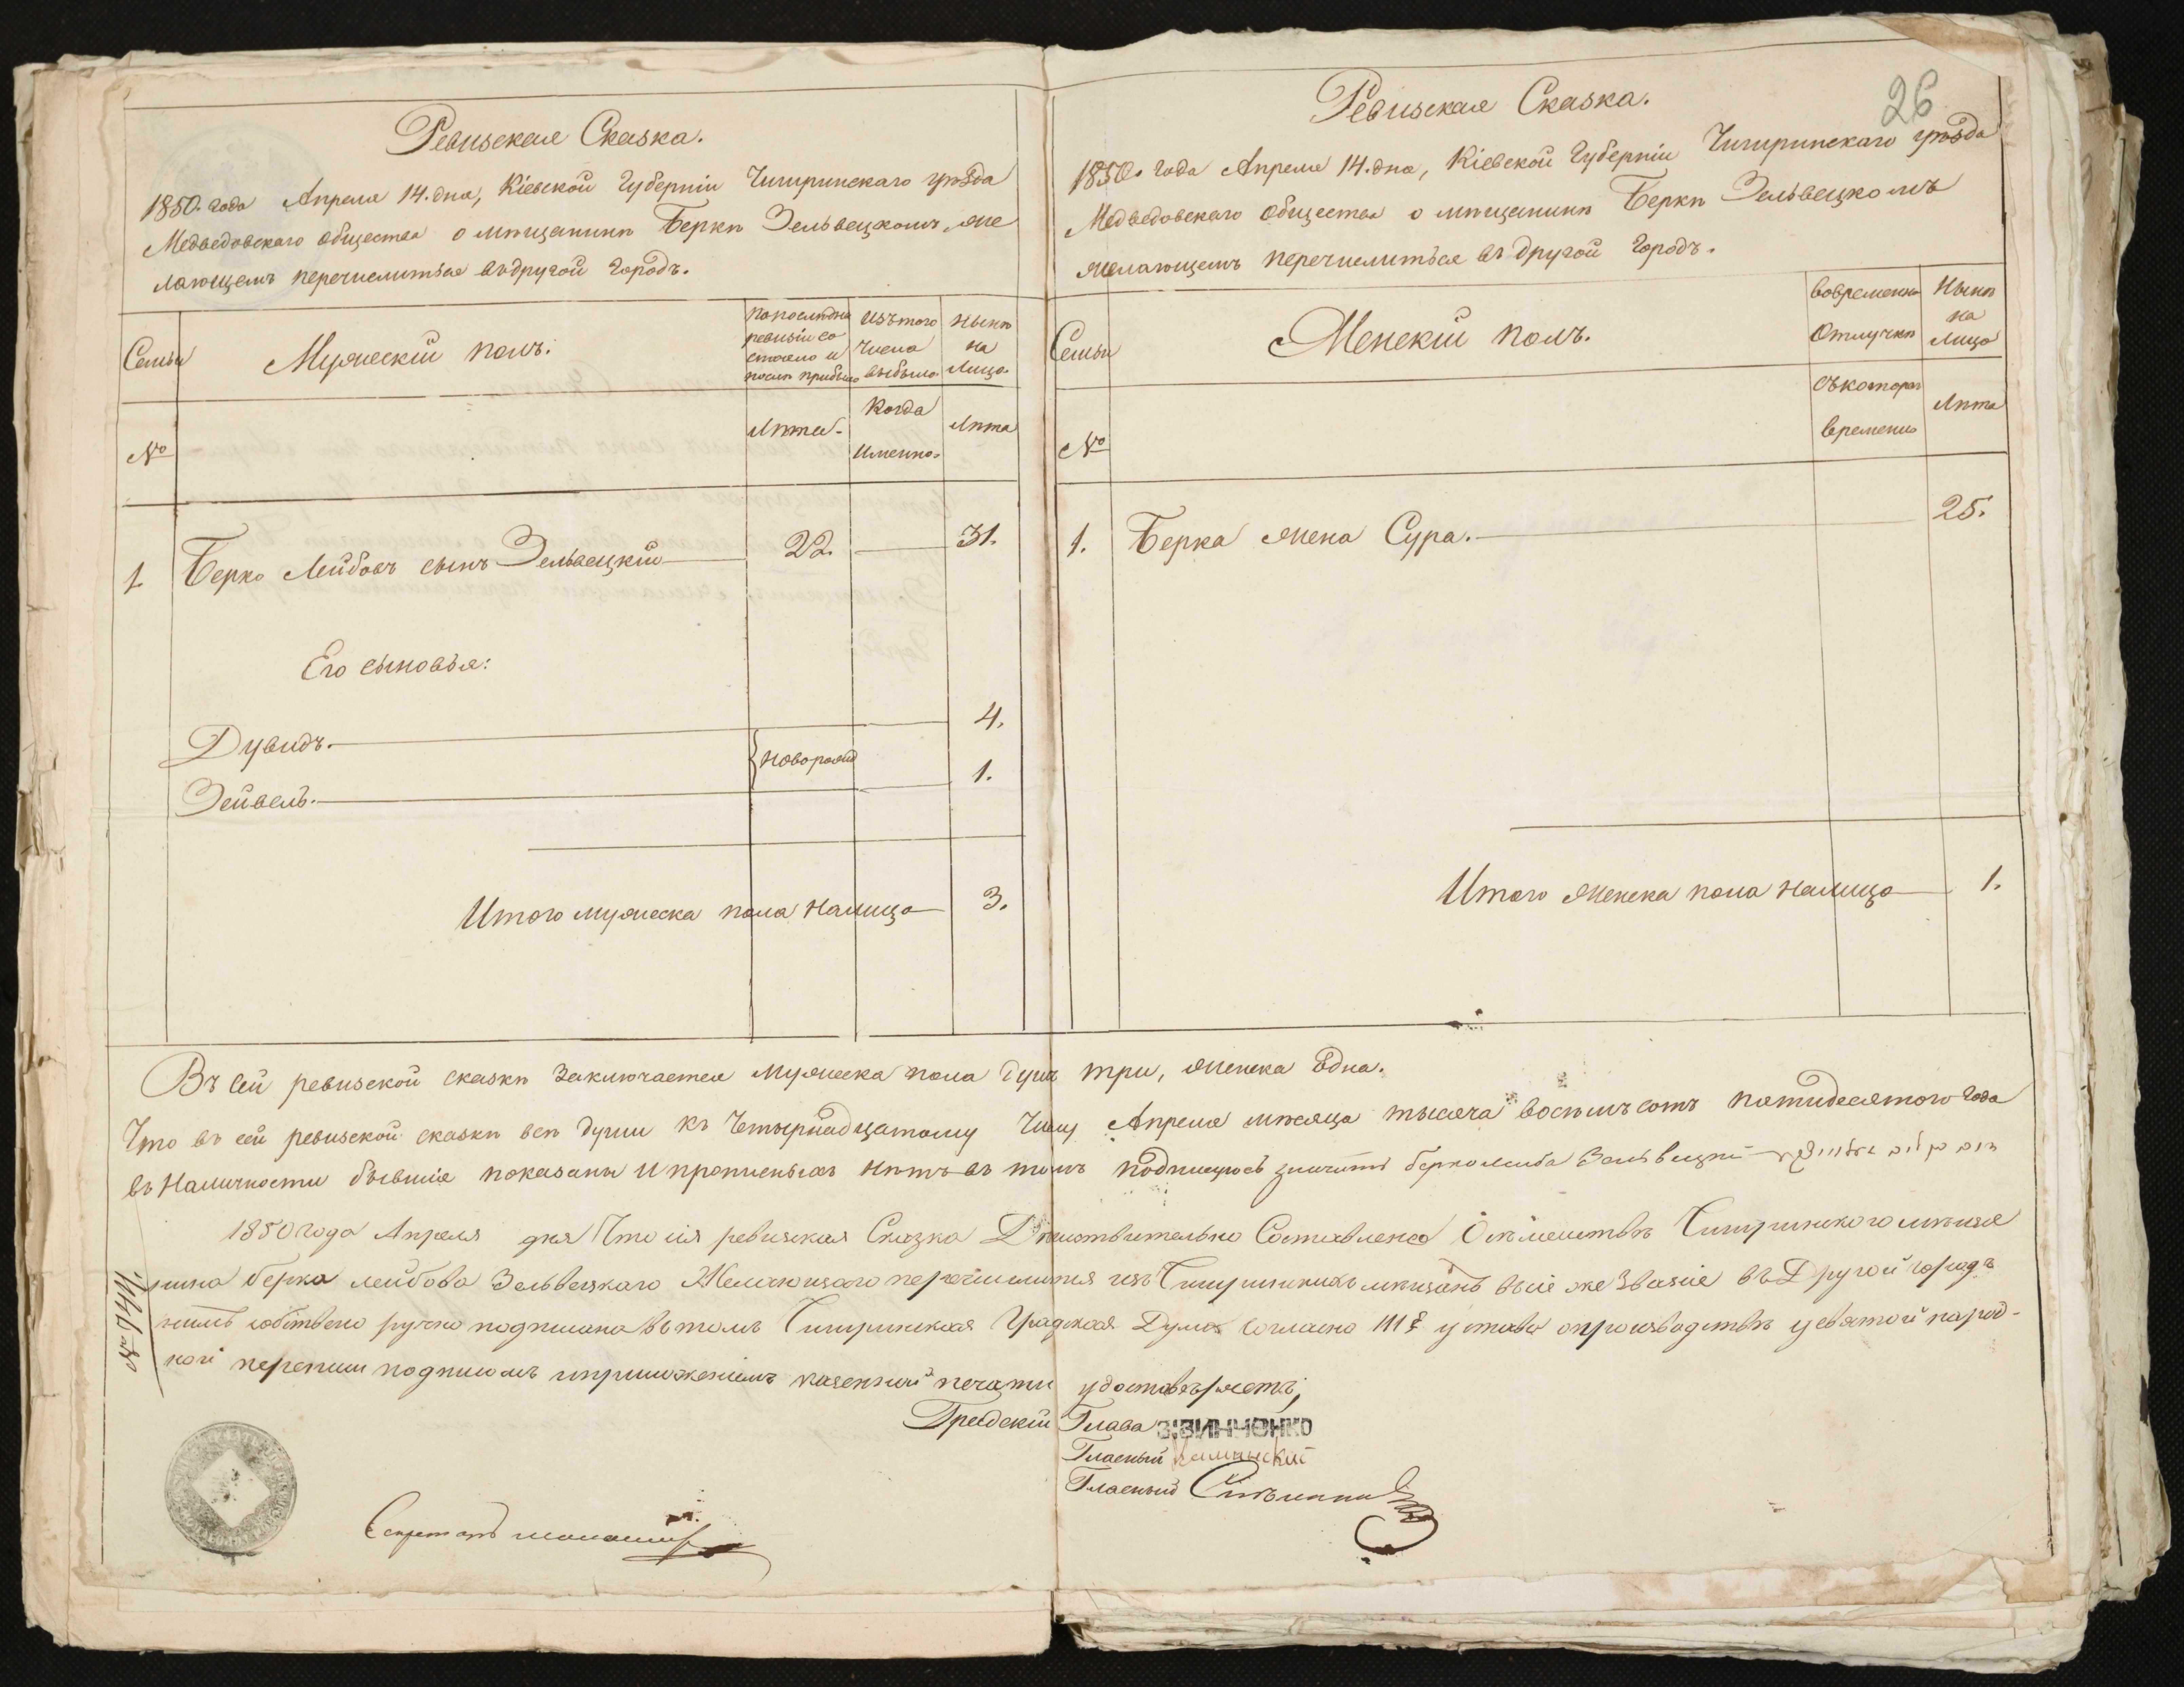 Ревизская Сказка.
1850. года Апреля 14. дня, Кіевской Губерніи Чигиринскаго уѣзда
Медведовскаго общества о мѣщанинѣ Беркѣ Зельвецкомъ, же
лающемъ перечислиться въ другой Городъ.
Семьи
Мужескій полъ.
По послѣдней ревизіи со стояло и послѣ прибыло
Изъ того числа выбыло
Нынѣ на Лицо
№
Лѣта.
Когда Именно.
Лѣта
1 Берко Лейбовъ сынъ Зельвецкій 22. 31.
Его сыновья:
Дувидъ. 4.
Новорожд
Зейвель. 1.
Итого мужеска пола налицо 3.
26
Ревизская Сказка.
1850. года Апреля 14. дня, Кіевской Губерніи Чигиринскаго уѣзда
Медведовскаго общества о мѣщанинѣ Беркѣ Зельвецкомъ
желающемъ перечислиться въ другой Городъ.
Семьи
Женскій полъ.
Вовременной Отлучкѣ
Нынѣ на Лицо
№
Съ котораго времени
Лѣта
1. Берка жена Сура. 25.
Итого женска пола налицо 1.
Въ сей ревизской сказкѣ Заключается Мужеска пола душъ три, женска Одна.
Что въ сей ревизской сказкѣ всѣ души къ Четырнадцатому Числу Апреля мѣсяца тысяча восѣмъ сотъ пятидесятого Года
въ Наличности бывшіе показаны и прописныхъ нѣтъ въ томъ подпишусь значитъ Берко Лейба Зельвецкій
1850 года Апреля дня Что сія ревизская Сказка Дѣйствительно Составлена О семействѣ Чигиринского мѣща
нина Берка Лейбова Зельвецкаго Желающаго перечислится изъ Чигиринскихъ мѣщанъ въ сіе же Званіе въ Другой городъ
нимъ собствено ручно подписана въ томъ Чигиринская Градская Дума согласно 111 § устава о производствѣ девятой народ-
ной переписи подписомъ и приложеніемъ казенной печати удостовѣряетъ,
Градскій Глава З. ЗИНЧЕНКО
Гласный
Гласный
Секретарь